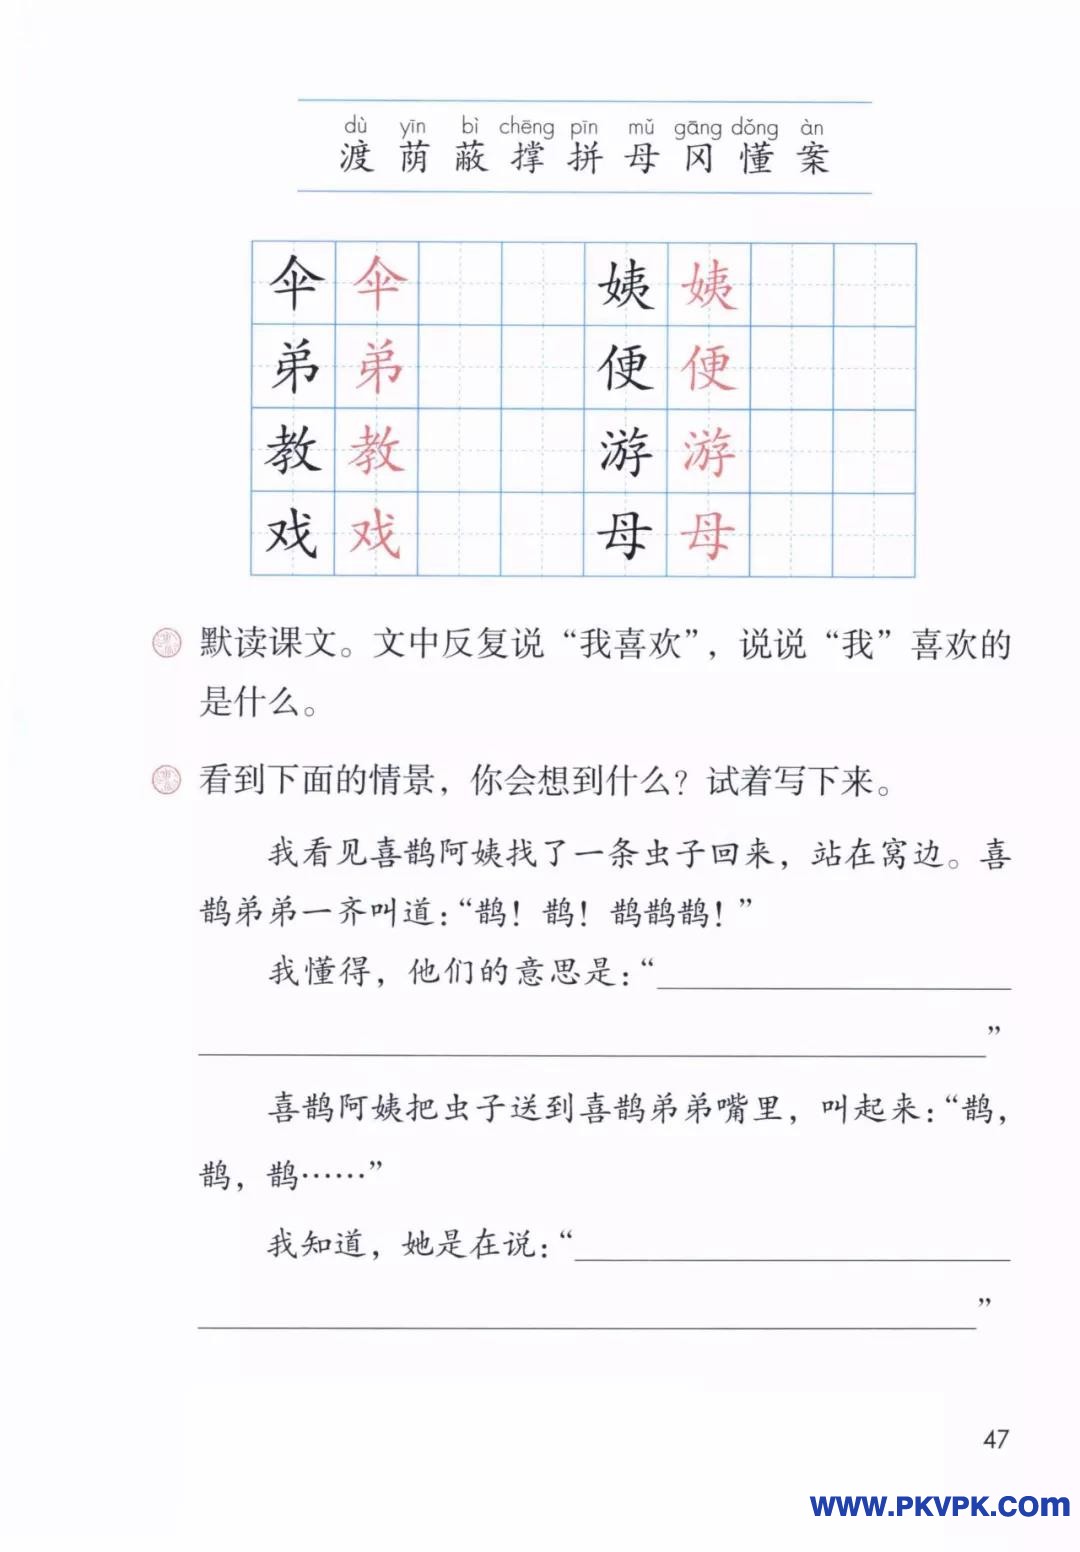 dù yīn bì chēng pīn mǔ gāng dǒng àn
渡 荫 蔽 撑 拼 母 冈 懂 案
伞 伞 姨 姨
弟 弟 便 便
教 教 游 游
戏 戏 母 母
默读课文。文中反复说“我喜欢”，说说“我”喜欢的
是什么。
看到下面的情景，你会想到什么？试着写下来。
我看见喜鹊阿姨找了一条虫子回来，站在窝边。喜
鹊弟弟一齐叫道：“鹊！鹊！鹊鹊鹊！”
我懂得，他们的意思是：“
”
喜鹊阿姨把虫子送到喜鹊弟弟嘴里，叫起来：“鹊，
鹊，鹊……”
我知道，她是在说：“
”
47
WWW.PKVPK.com